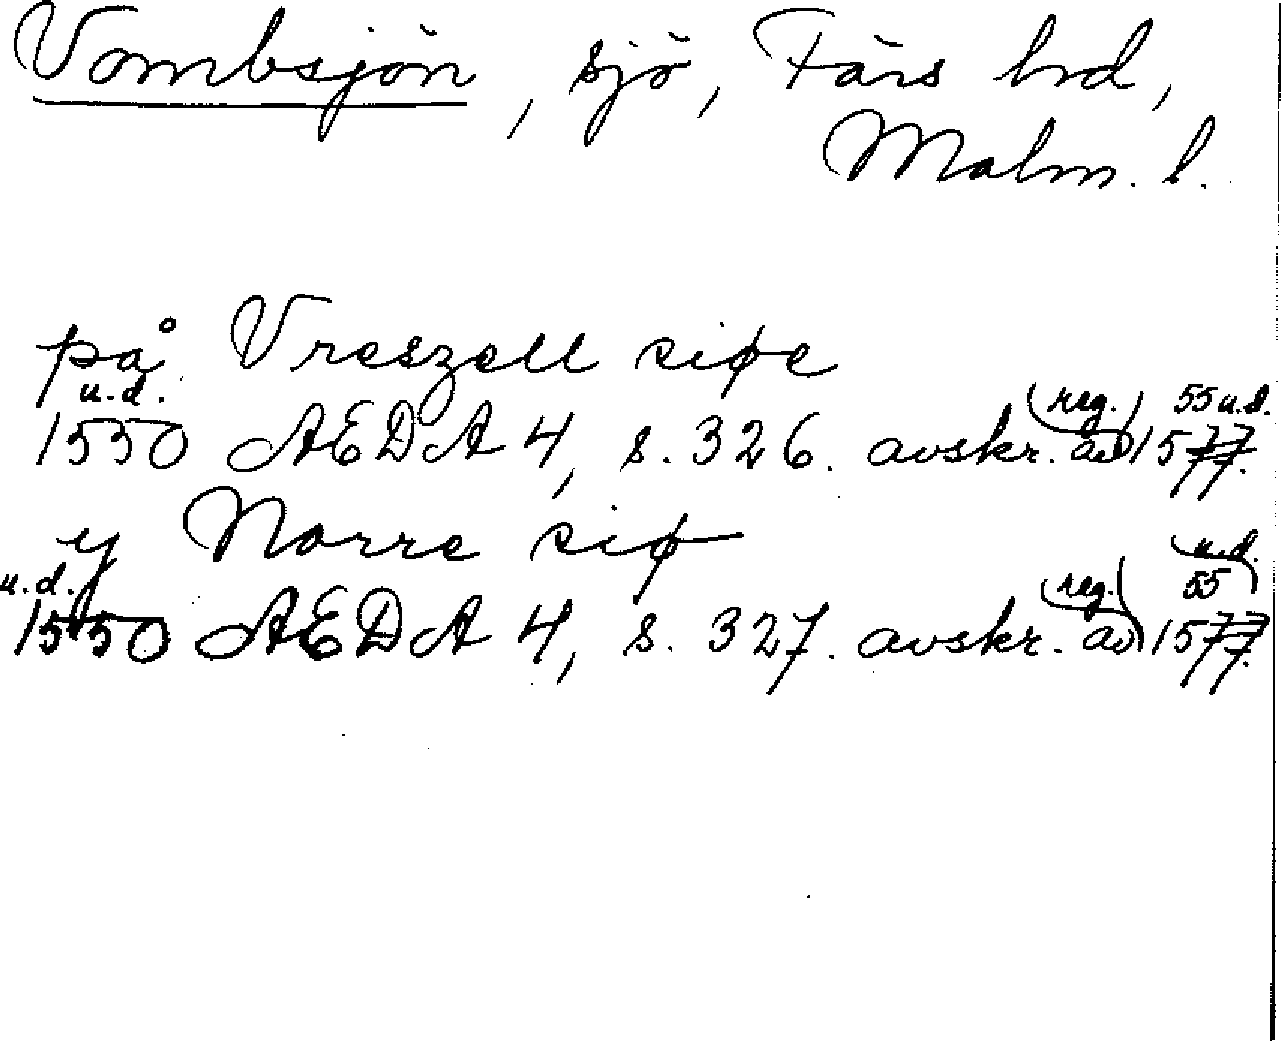 Vombsjön, sjö, Färs hrd,
Malm. l.
på Vreszell siøe
u.d. (reg.) 55 u.d.
1550 AEDA 4, s. 326. avskr. av 1577.
y Norre siø
u.d. (reg.) 55 u.d.
1550 AEDA 4, s. 327. avskr. av 1577.